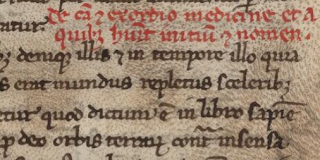 De cā ⁊ exordio medicine et A
ratur. quibꝰ huit initiū ⁊ nomen.
denique illis ⁊ in tempore illo quia
s erat mundus repletus sceleribꝫ
etur quod dictum ē in libro sapiē
p deo orbis terraꝝ insensa